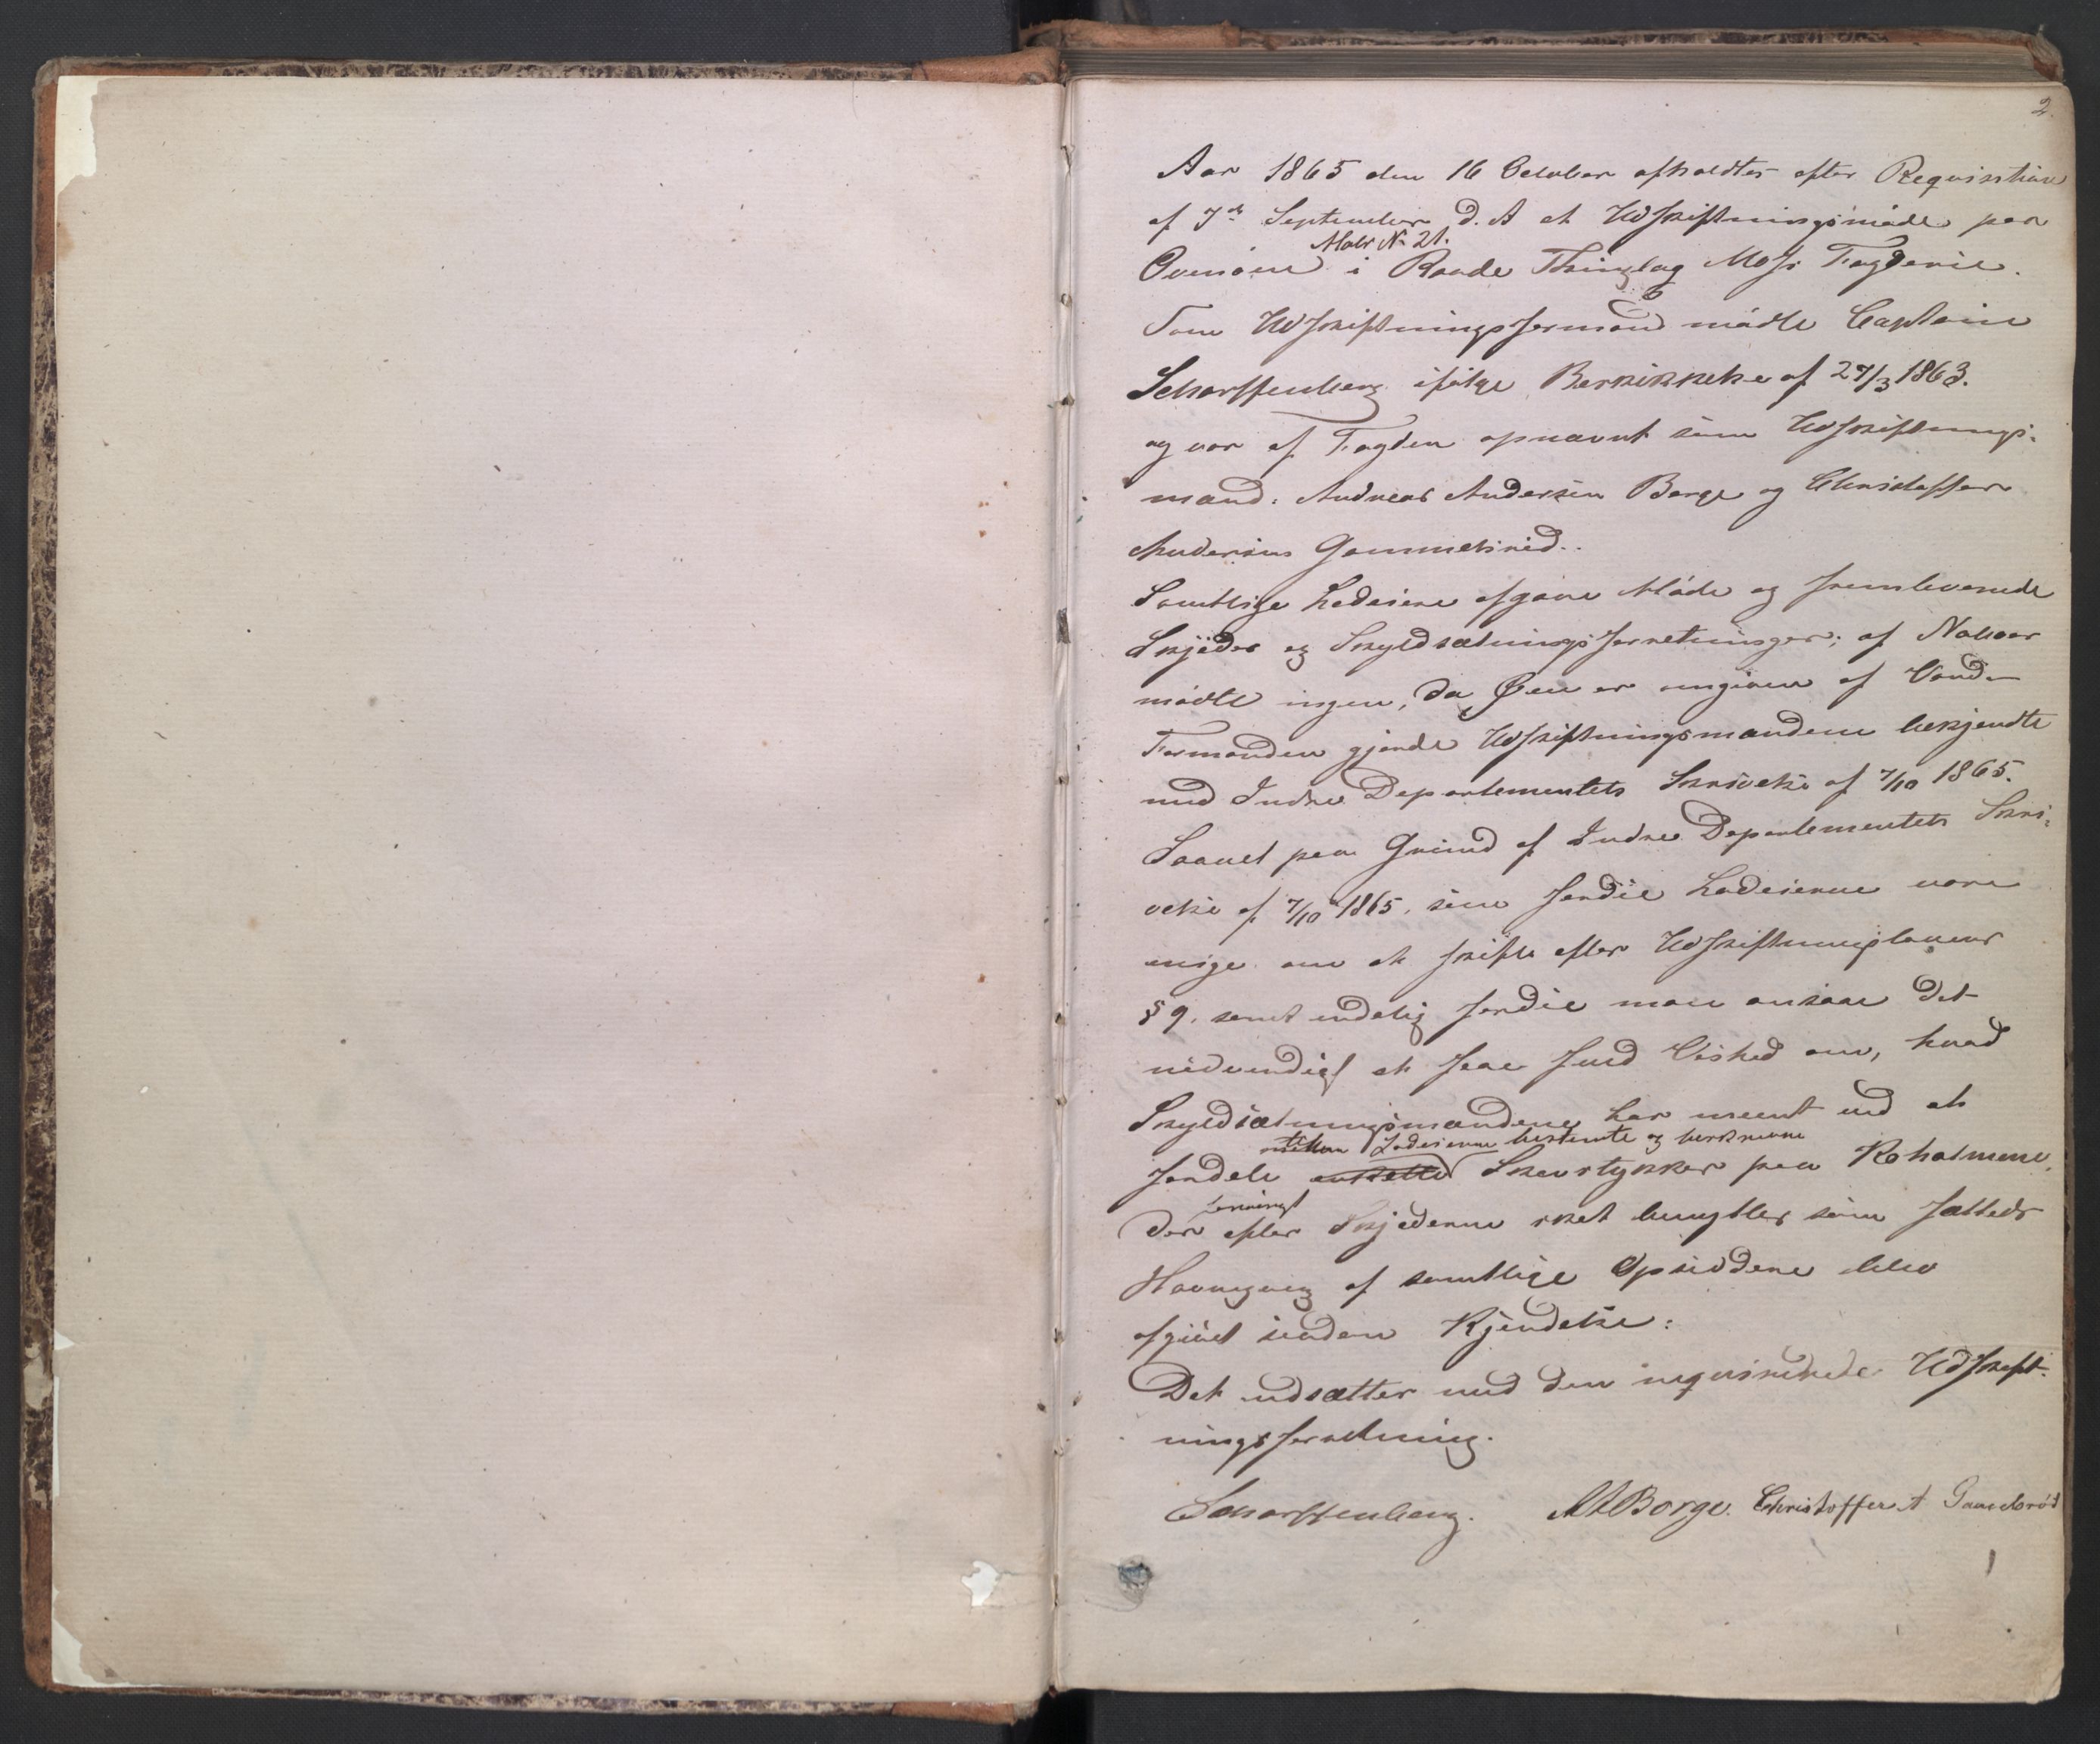 2.
Aar 1865 den 16 October afholdtes efter Requisition
af 7de September d. A et Udskiftningsmøde paa
Matr No 21.
i Raade Thinglag Moss Fogderie.
Som Udskiftningsformand mødte Captain
Scharffenberg ifølge Beskikkelse af 27/3 1863.
og var af Fogden opnævnt som Udskiftnings-
mænd: Andreas Andersen Borge og Christoffer
Andersen Gammelsrød.
Samtlige Lodeiere afgave Møde og fremleverede
Skjøder og Skyldsætningsforretninger; af Naboer
mødte ingen, da Øen er omgiven af Vand.
Formanden gjorde Udskiftningsmændene bekjendte
med Indre Departementets Skrivelse af 7/10 1865.
Saavel paa Grund af Indre Departementets Skri-
velse af 7/10 1865, som fordie Lodeierne vare
enige om at skifte efter Udskiftningslovens
§ 9. samt endelig fordie man ansaae det
nødvendigt at faae fuld Vished om, hvad
Skyldsætningsmændene har meent ved at
mellem Lodeierne bestemte og beskrevne
fordele enkelte Skovstykker paa Koholmene,
der efter Skjøderne skal benyttes som fælleds
Havnegang af samtlige Opsiddere blev
afgivet saadan Kjendelse:
Det udsættes med den requirerede Udskift-
ningsforretning.
Scharffenberg. AABorge. Christoffer A Gamelsrød